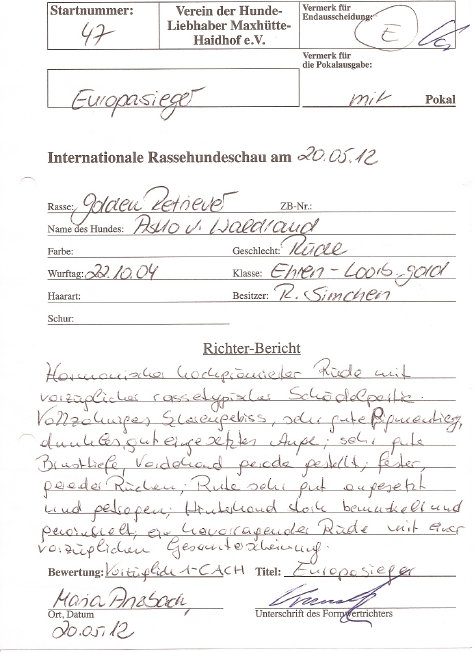 Startnummer:
47
Verein der Hunde-
Liebhaber Maxhütte-
Haidhof e.V.
Vermerk für
Endausscheidung:
E
Vermerk für
die Pokalausgabe:
Europasieger
mit Pokal
Internationale Rassehundeschau am 20.05.12
Rasse: Golden Retriever ZB-Nr.:
Name des Hundes: v. Waldrand
Farbe: Geschlecht: Rüde
Wurftag: 22.10.04 Klasse: Ehren - Loorb. gold
Haarart: Besitzer: R. Simchen
Schur:
Richter-Bericht
Harmonischer hochprämierter Rüde mit
vorzüglicher rassetypischer Schädelpartie.
Vollzahniges Scherengebiss, sehr gute Pigmentierg,
dunkles gut eingesetztes Auge; sehr gute
Brusttiefe, Vorderhand gerade gestellt; fester,
gerader Rücken; Rute sehr gut angesetzt
und getragen; Hinterhand stark bemuskelt und
gewinkelt; ein hervorragender Rüde mit einer
vorzüglichen Gesamterscheinung.
Bewertung: Vorzüglich 1-CACH Titel: Europasieger
Maria
Ort, Datum Unterschrift des Formwertrichters
20.05.12